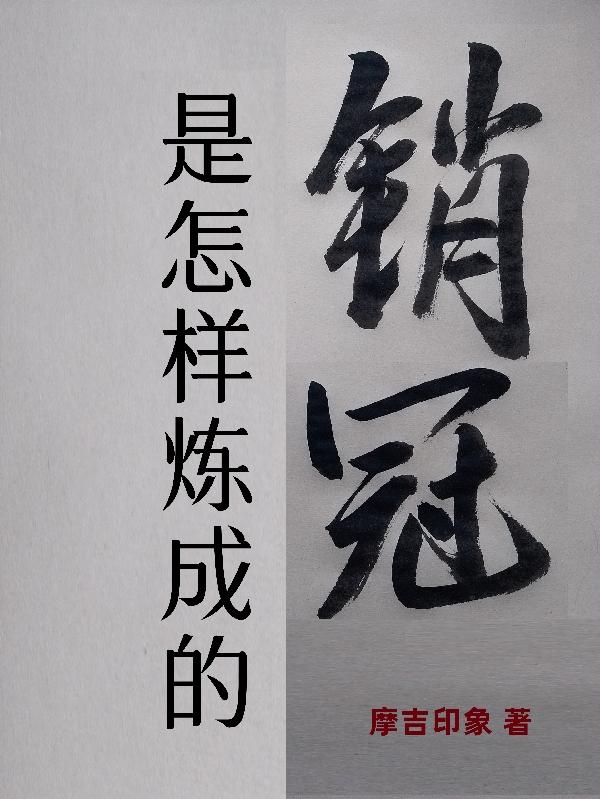 销冠
是怎样炼成的
摩吉印象 著